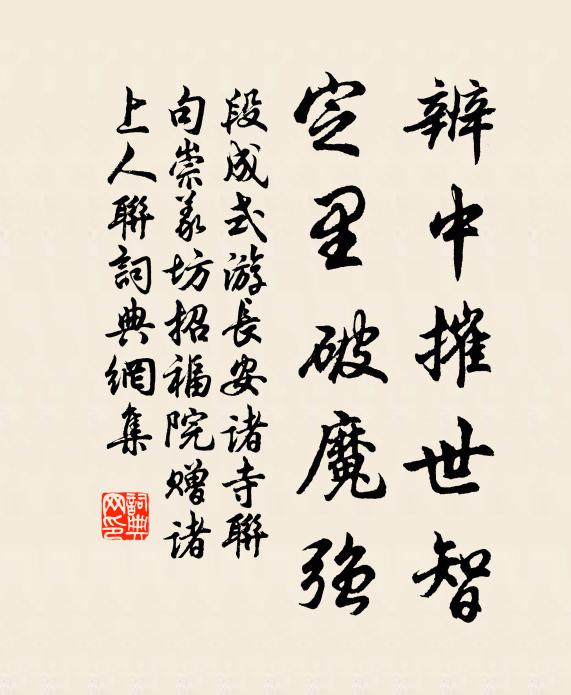 辨中摧世智
定里破魔强
段成式游長安諸寺聯
句崇義坊招福院赠諸
上人聯詞典網集
詞典
网印